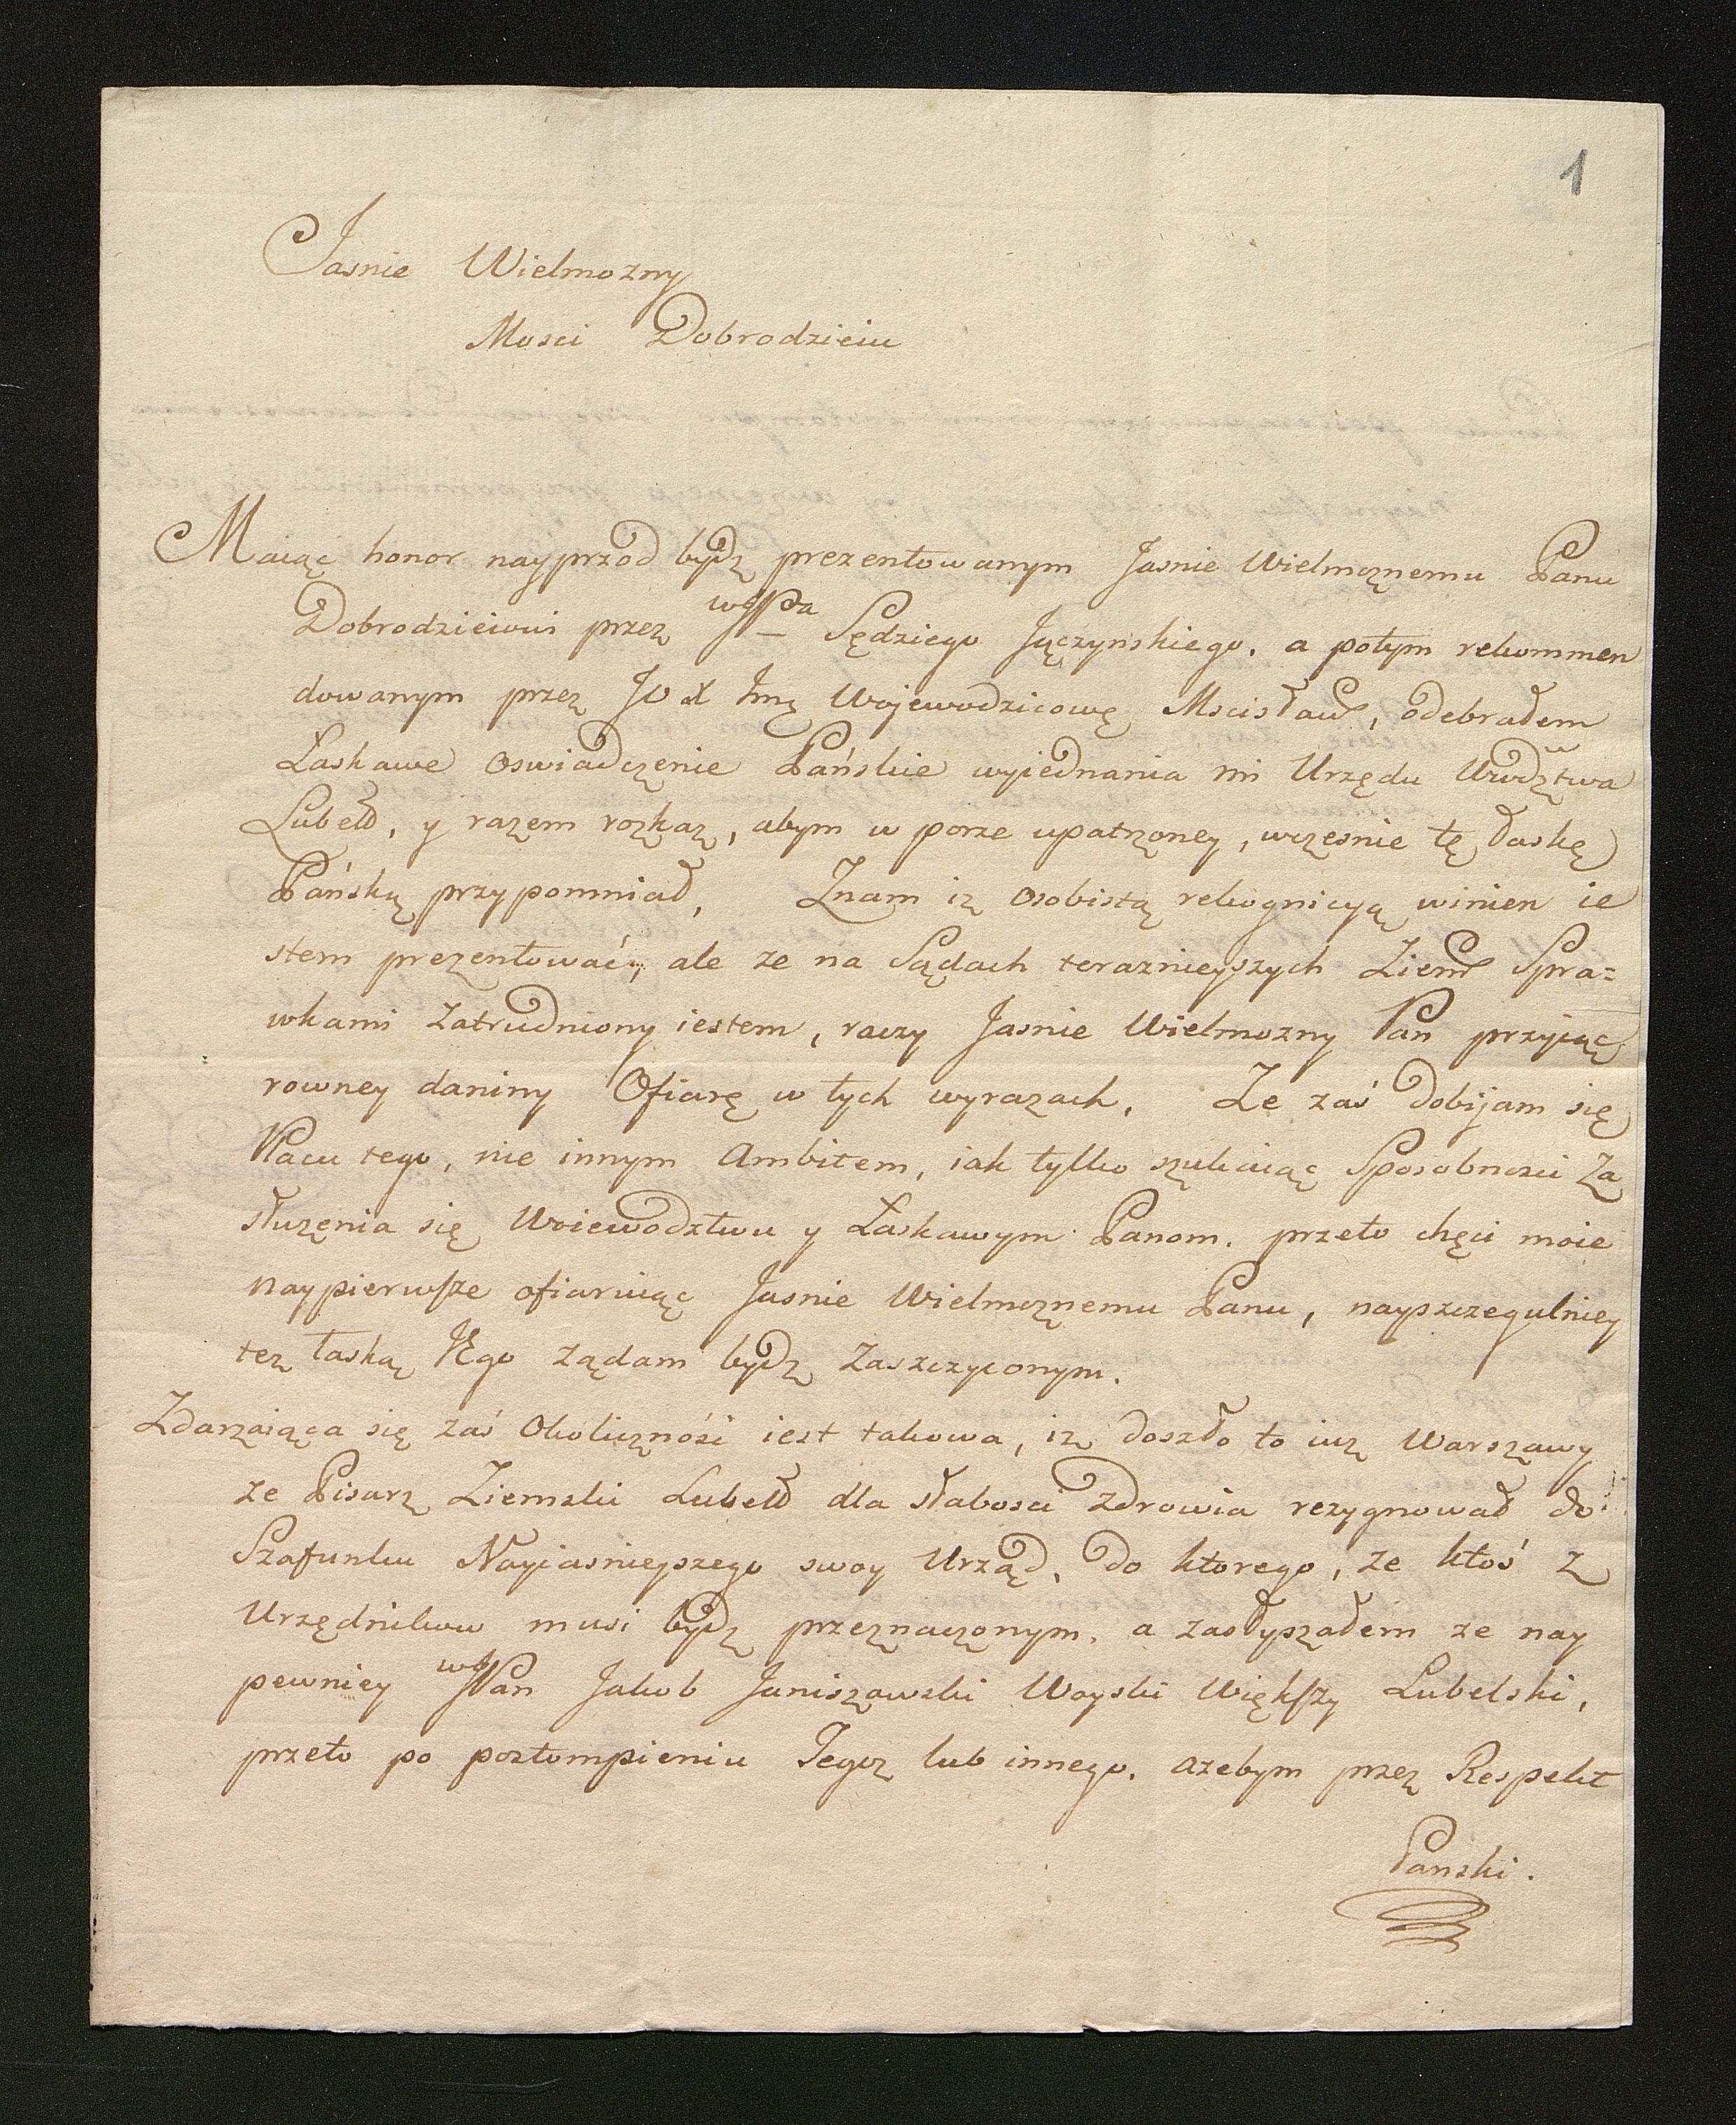 1
Jasnie Wielmozny
Mosci Dobrodzieiu
Maiąc honor nayprzod bydz prezentowanym Jasnie Wielmoznemu Panu
Dobrodzieiowi przez Sędziego Jączynskiego. a potym rekommen
dowanym przez Jmę Wojewodzicowę Mscisław, odebrałem
Łaskawe oswiadczenie Pańskie wyiednania mi Urzędu Wwodztwa
Lubell, y razem rozkaz, abym w porze upatrzoney, wczesnie tę łaskę
Pańską przypomniał, Znam iz osobistą rekognicyą winien ie
stem prezentować, ale ze na Sądach terazniejszych Ziem Spra=
wkami zatrudniony iestem, raczy Jasnie Wielmozny Pan przyiąć
rowney daniny Ofiarę w tych wyrazach. Ze zaś dobijam się
Placu tego, nie innym Ambitem, iak tylko szukaiąc Sposobnosci za
służenia się Woiewodztwu y Łaskawym Panom. przeto chęci moie
naypierwsze ofiaruiąc Jasnie Wielmoznemu Panu, nayszczegulniey
tez łaską JEgo ządam bydz zaszczyconym.
Zdarzaiąca się zaś Okoliczność iest takowa, iz doszło to iuz Warszawy
ze Pisarz Ziemski Lubell dla słabosci zdrowia rezygnował do
Szafunku Nayiasnieyszego swoy Urząd, do ktorego, ze ktoś z
Urzędnikow musi bydz przeznaczonym, a zasłyszałem ze nay
pewniey Pan Jakob Janiszowski Woyski Większy Lubelski,
przeto po postompieniu Tegoz lub innego. azebym przez Respekt
Panski.